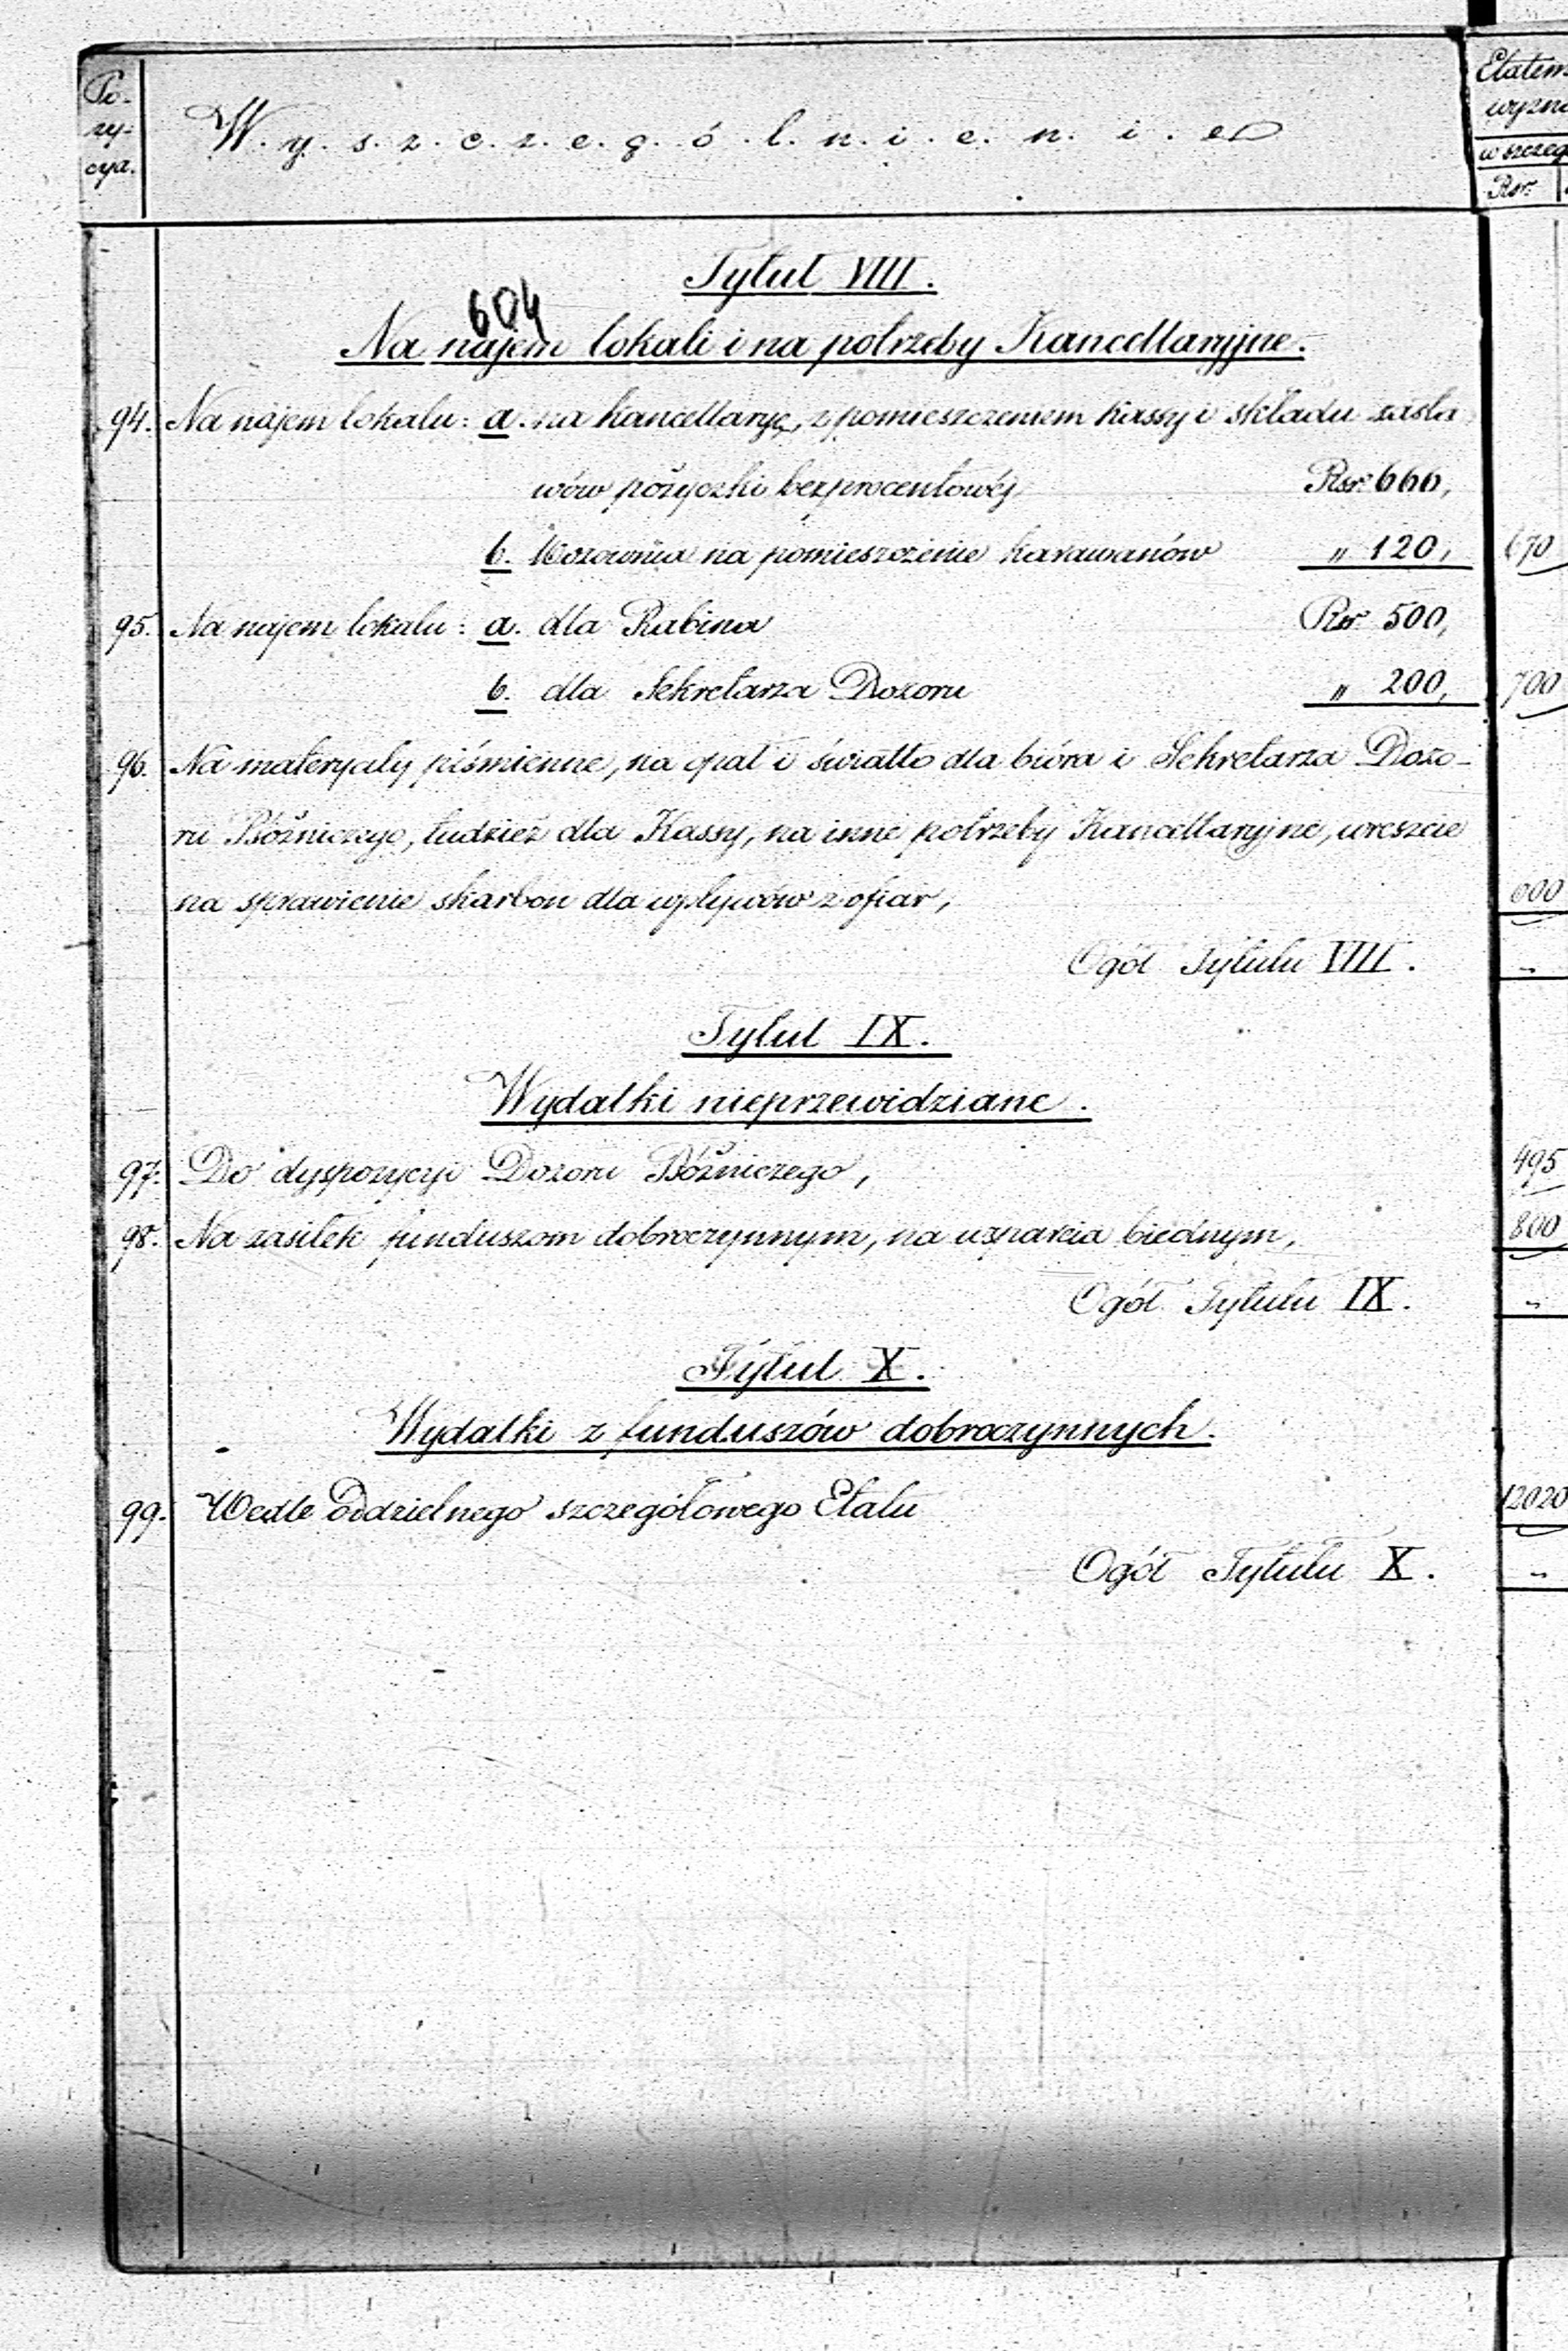 Po-
zy-
cya.
W.y.s.z.c.z.e.g.ó.l.n.i.e.n.i.e
Etatem
w szczeg
Rsr.
Tytuł VIII.
604
Na najem lokali i na potrzeby Kancellaryjne.
94. Na najem lokalu: a. na kancellaryę, z pomieszczeniem kassy i składu zasta
wów pożyczki bezprocentowéj Rsr. 660,
b. Wozownia na pomieszczenie karawanów " 120, 670
95. Na najem lokalu: a. dla Rabina Rsr. 500,
b. dla Sekretarza Dozoru " 200, 700
96. Na materyały piśmienne, na opał i światło dla bióra i Sekretarza Dozo-
ru Bóżniczego, tudzież dla Kassy, na inne potrzeby Kancellaryjne, wreszcie
na sprawienie skarbon dla wpływów z ofiar, 600
Ogół Tytułu VIII. "
Tytuł IX.
Wydatki nieprzewidziane.
97. Do dyspozycyi Dozoru Bóżniczego, 495
98. Na zasiłek funduszom dobroczynnym, na wsparcia biednym, 800
Ogół Tytułu IX. "
Tytuł X.
Wydatki z funduszów dobroczynnych.
99. Wedle oddzielnego szczegółowego Etatu 12020
Ogół Tytułu X. "